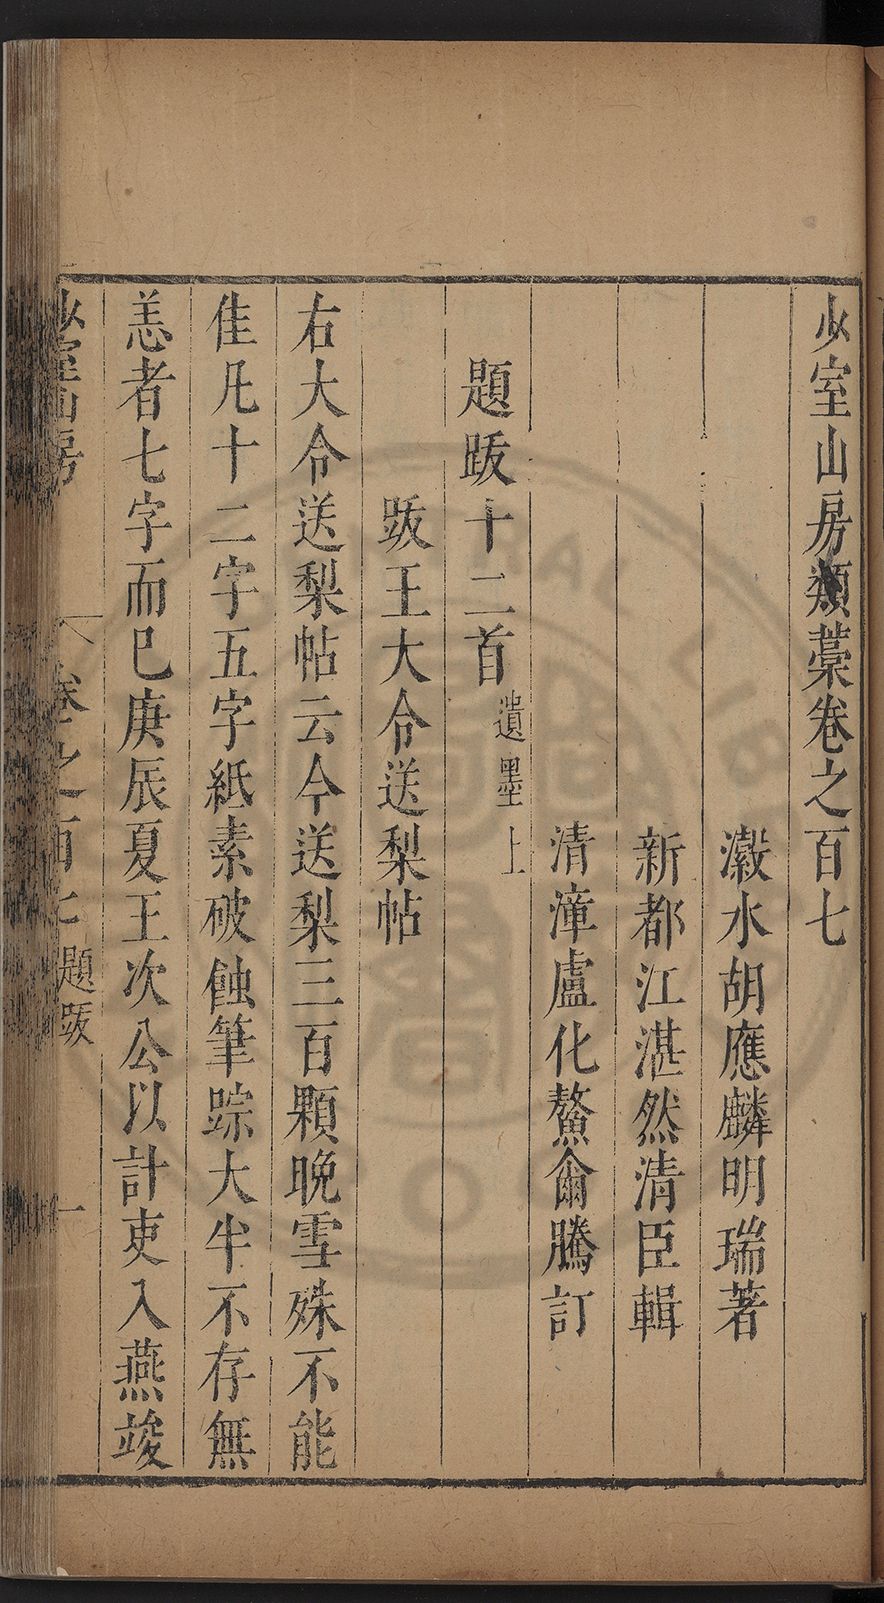 少室山房類藁卷之百七
瀫水胡應麟明瑞著
新都江湛然清臣輯
清漳盧化鰲侖騰訂
題跋十二首遺墨上
跋王大令送梨帖
右大令送梨帖云今送梨三百顆晚雪殊不能
佳凡十二字五字紙素破蝕筆踪大半不存無
恙者七字而已庚辰夏王次公以計吏入燕竣
少室山房 卷之百七 題跋 一